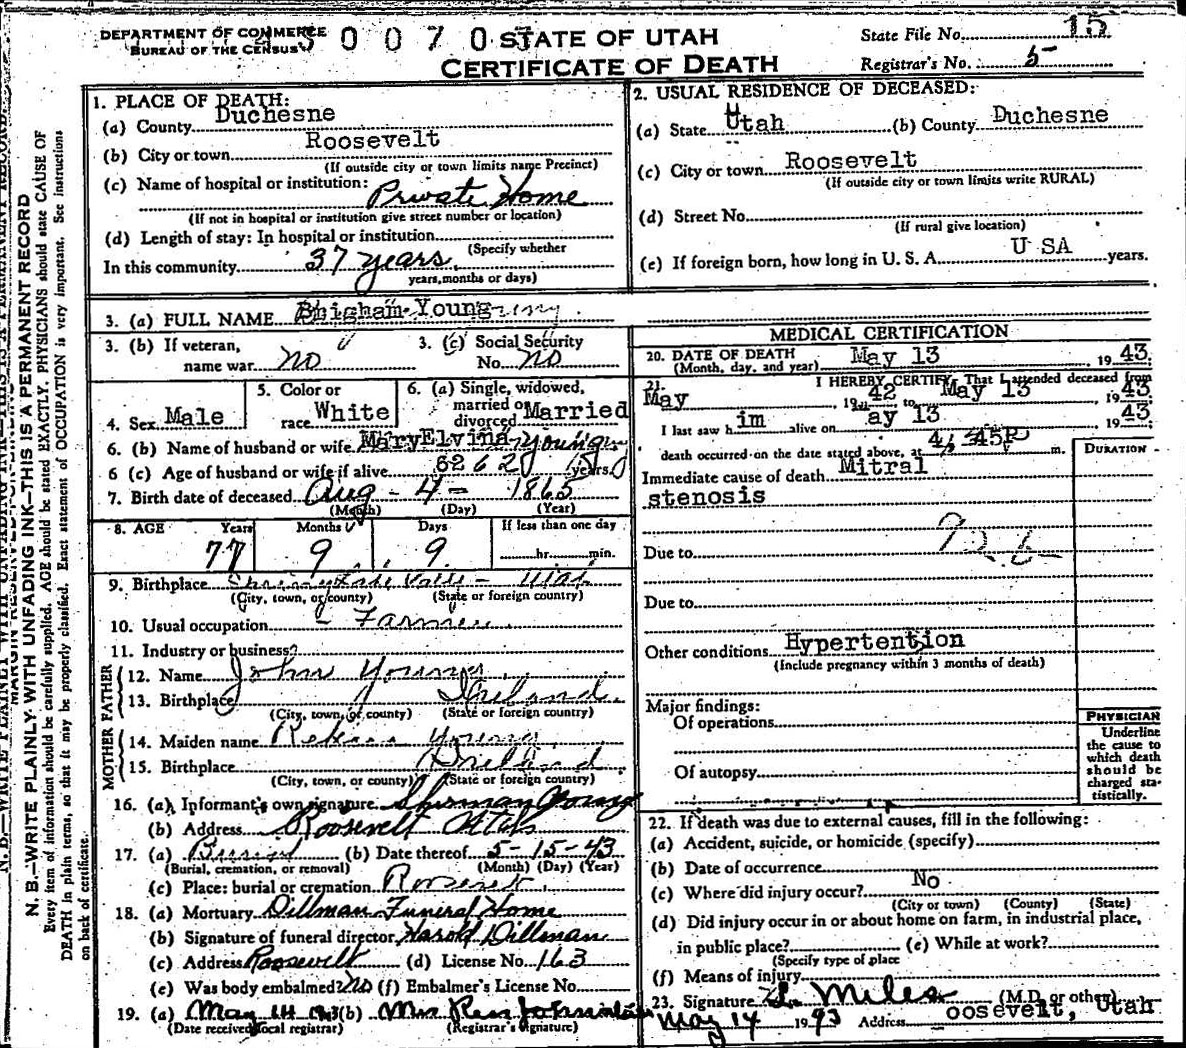 DEPARTMENT OF COMMERCE
BUREAU OF THE CENSUS
0 0 7 0
STATE OF UTAH
CERTIFICATE OF DEATH
State File No. 15
Registrar's No. 5
1. PLACE OF DEATH:
(a) County Duchesne
(b) City or town Roosevelt
(If outside city or town limits name Precinct)
(c) Name of hospital or institution:
Private Home
(If not in hospital or institution give street number or location)
(d) Length of stay: In hospital or institution
(Specify whether
In this community 37 years
years, months or days)
2. USUAL RESIDENCE OF DECEASED:
(a) State Utah (b) County Duchesne
(c) City or town Roosevelt
(If outside city or town limits write RURAL)
(d) Street No.
(If rural give location)
(e) If foreign born, how long in U. S. A. U SA years.
3. (a) FULL NAME Brigham Young
3. (b) If veteran,
name war no
3. (c) Social Security
No. no
4. Sex Male
5. Color or
race White
6. (a) Single, widowed,
married or
divorced Married
6. (b) Name of husband or wife Mary Elvina Young
6 (c) Age of husband or wife if alive 62 years
7. Birth date of deceased Aug - 4 - 1865
(Month) (Day) (Year)
8. AGE Years Months Days If less than one day
77 9 9 hr. min.
9. Birthplace
(City, town, or county) (State or foreign country)
10. Usual occupation - Farmer
11. Industry or business
FATHER
12. Name John Young
13. Birthplace Ireland
(City, town, or county) (State or foreign country)
MOTHER
14. Maiden name Young
15. Birthplace Ireland
(City, town, or county) (State or foreign country)
16. (a) Informant's own signature Sherman Young
(b) Address Roosevelt Utah
17. (a) Burial (b) Date thereof 5-15-43
(Burial, cremation, or removal) (Month) (Day) (Year)
(c) Place: burial or cremation Roosevelt
18. (a) Mortuary Dillman Funeral Home
(b) Signature of funeral director Harold Dillman
(c) Address Roosevelt (d) License No. 163
(e) Was body embalmed? no (f) Embalmer's License No.
19. (a) May 14 1943 (b) Mrs
(Date received local registrar) (Registrar's signature)
MEDICAL CERTIFICATION
20. DATE OF DEATH May 13 1943
(Month, day, and year)
21. I HEREBY CERTIFY, That I attended deceased from
May 1942 to May 13 1943
I last saw him alive on ay 13 1943
death occurred on the date stated above, at 4:45P m.
DURATION
Immediate cause of death Mitral
stenosis
Due to
Due to
Other conditions Hypertention
(Include pregnancy within 3 months of death)
Major findings:
Of operations
Of autopsy
PHYSICIAN
Underline
the cause to
which death
should be
charged sta-
tistically.
22. If death was due to external causes, fill in the following:
(a) Accident, suicide, or homicide (specify)
(b) Date of occurrence
(c) Where did injury occur? No
(City or town) (County) (State)
(d) Did injury occur in or about home on farm, in industrial place,
in public place? (e) While at work?
(Specify type of place
(f) Means of injury
23. Signature Miles (M.D. or other)
May 14 1943 Address oosevelt, Utah
N. B.—WRITE PLAINLY WITH UNFADING INK—THIS IS A PERMANENT RECORD
Every item of information should be carefully supplied. AGE should be stated EXACTLY. PHYSICIANS should state CAUSE OF
DEATH in plain terms, so that it may be properly classified. Exact statement of OCCUPATION is very important. See instructions
on back of certificate.